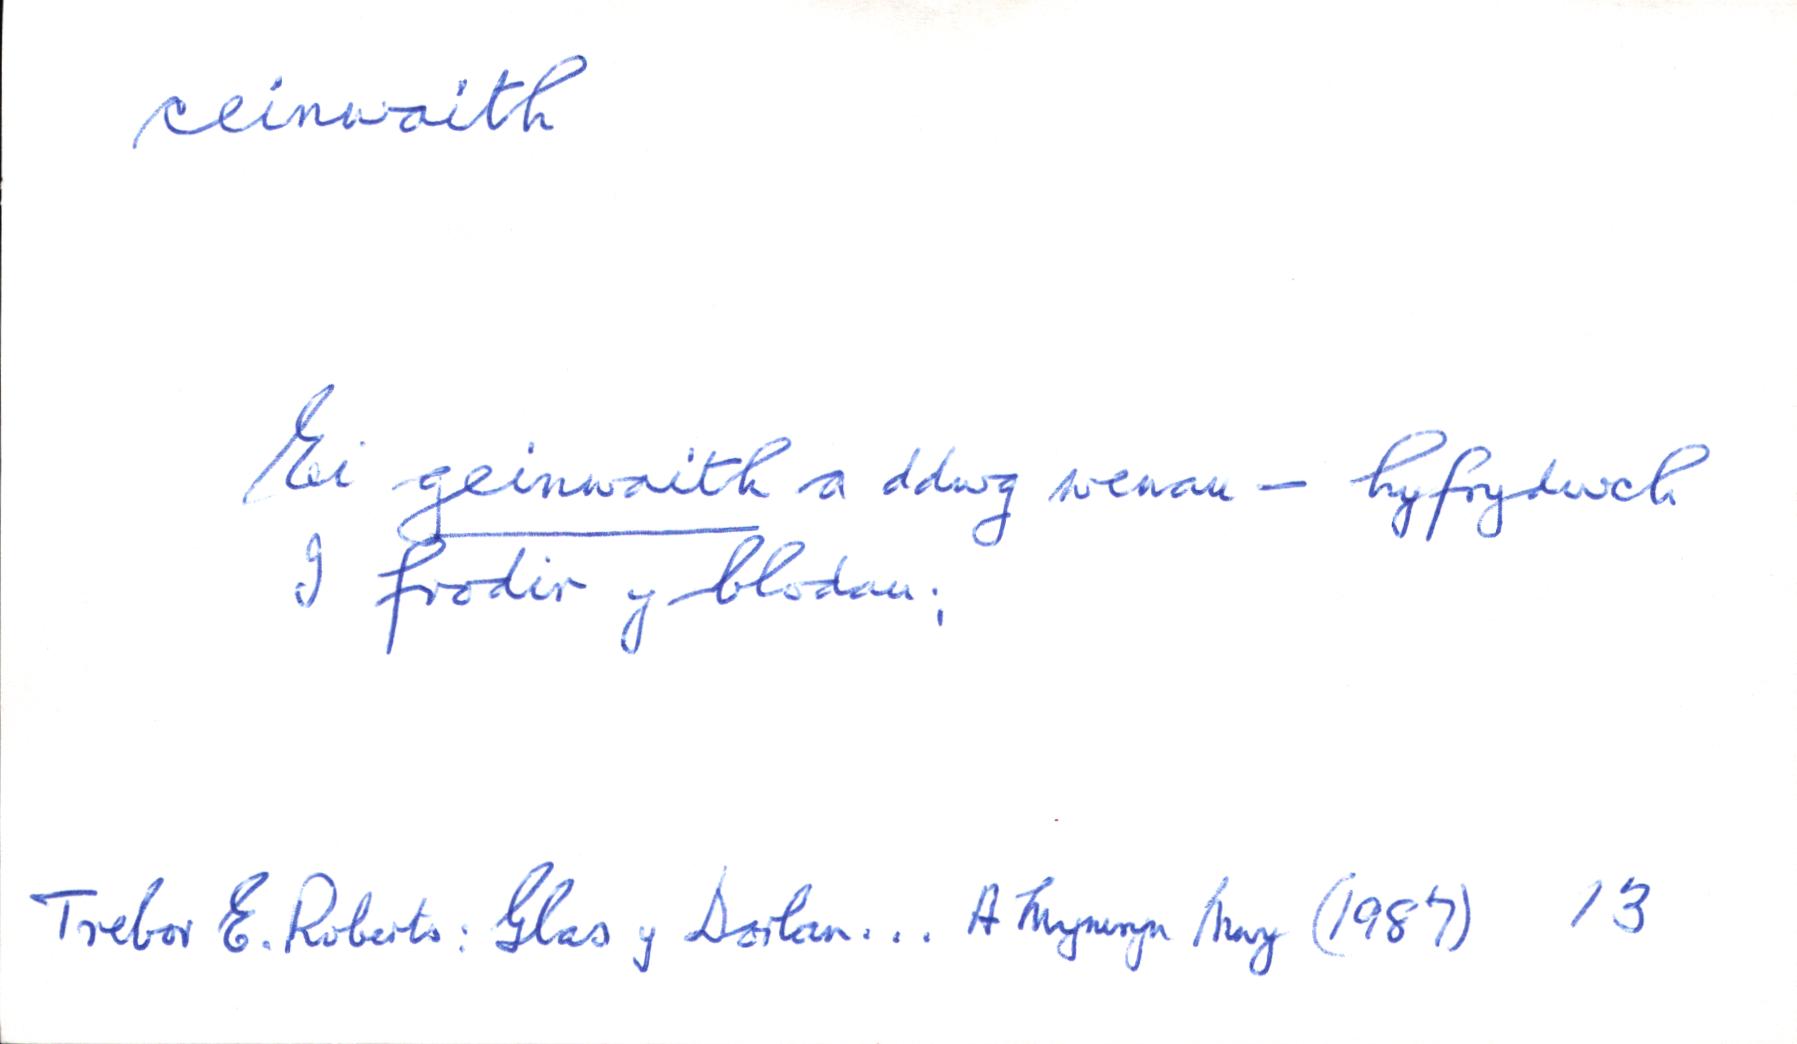 ceinwaith
Ei geinwaith a ddwg wenau – hyfrydwch
I frodir y blodau;
Trebor E. Roberts: Glas y Dorlan... A Mymryn Mwy (1987) 13